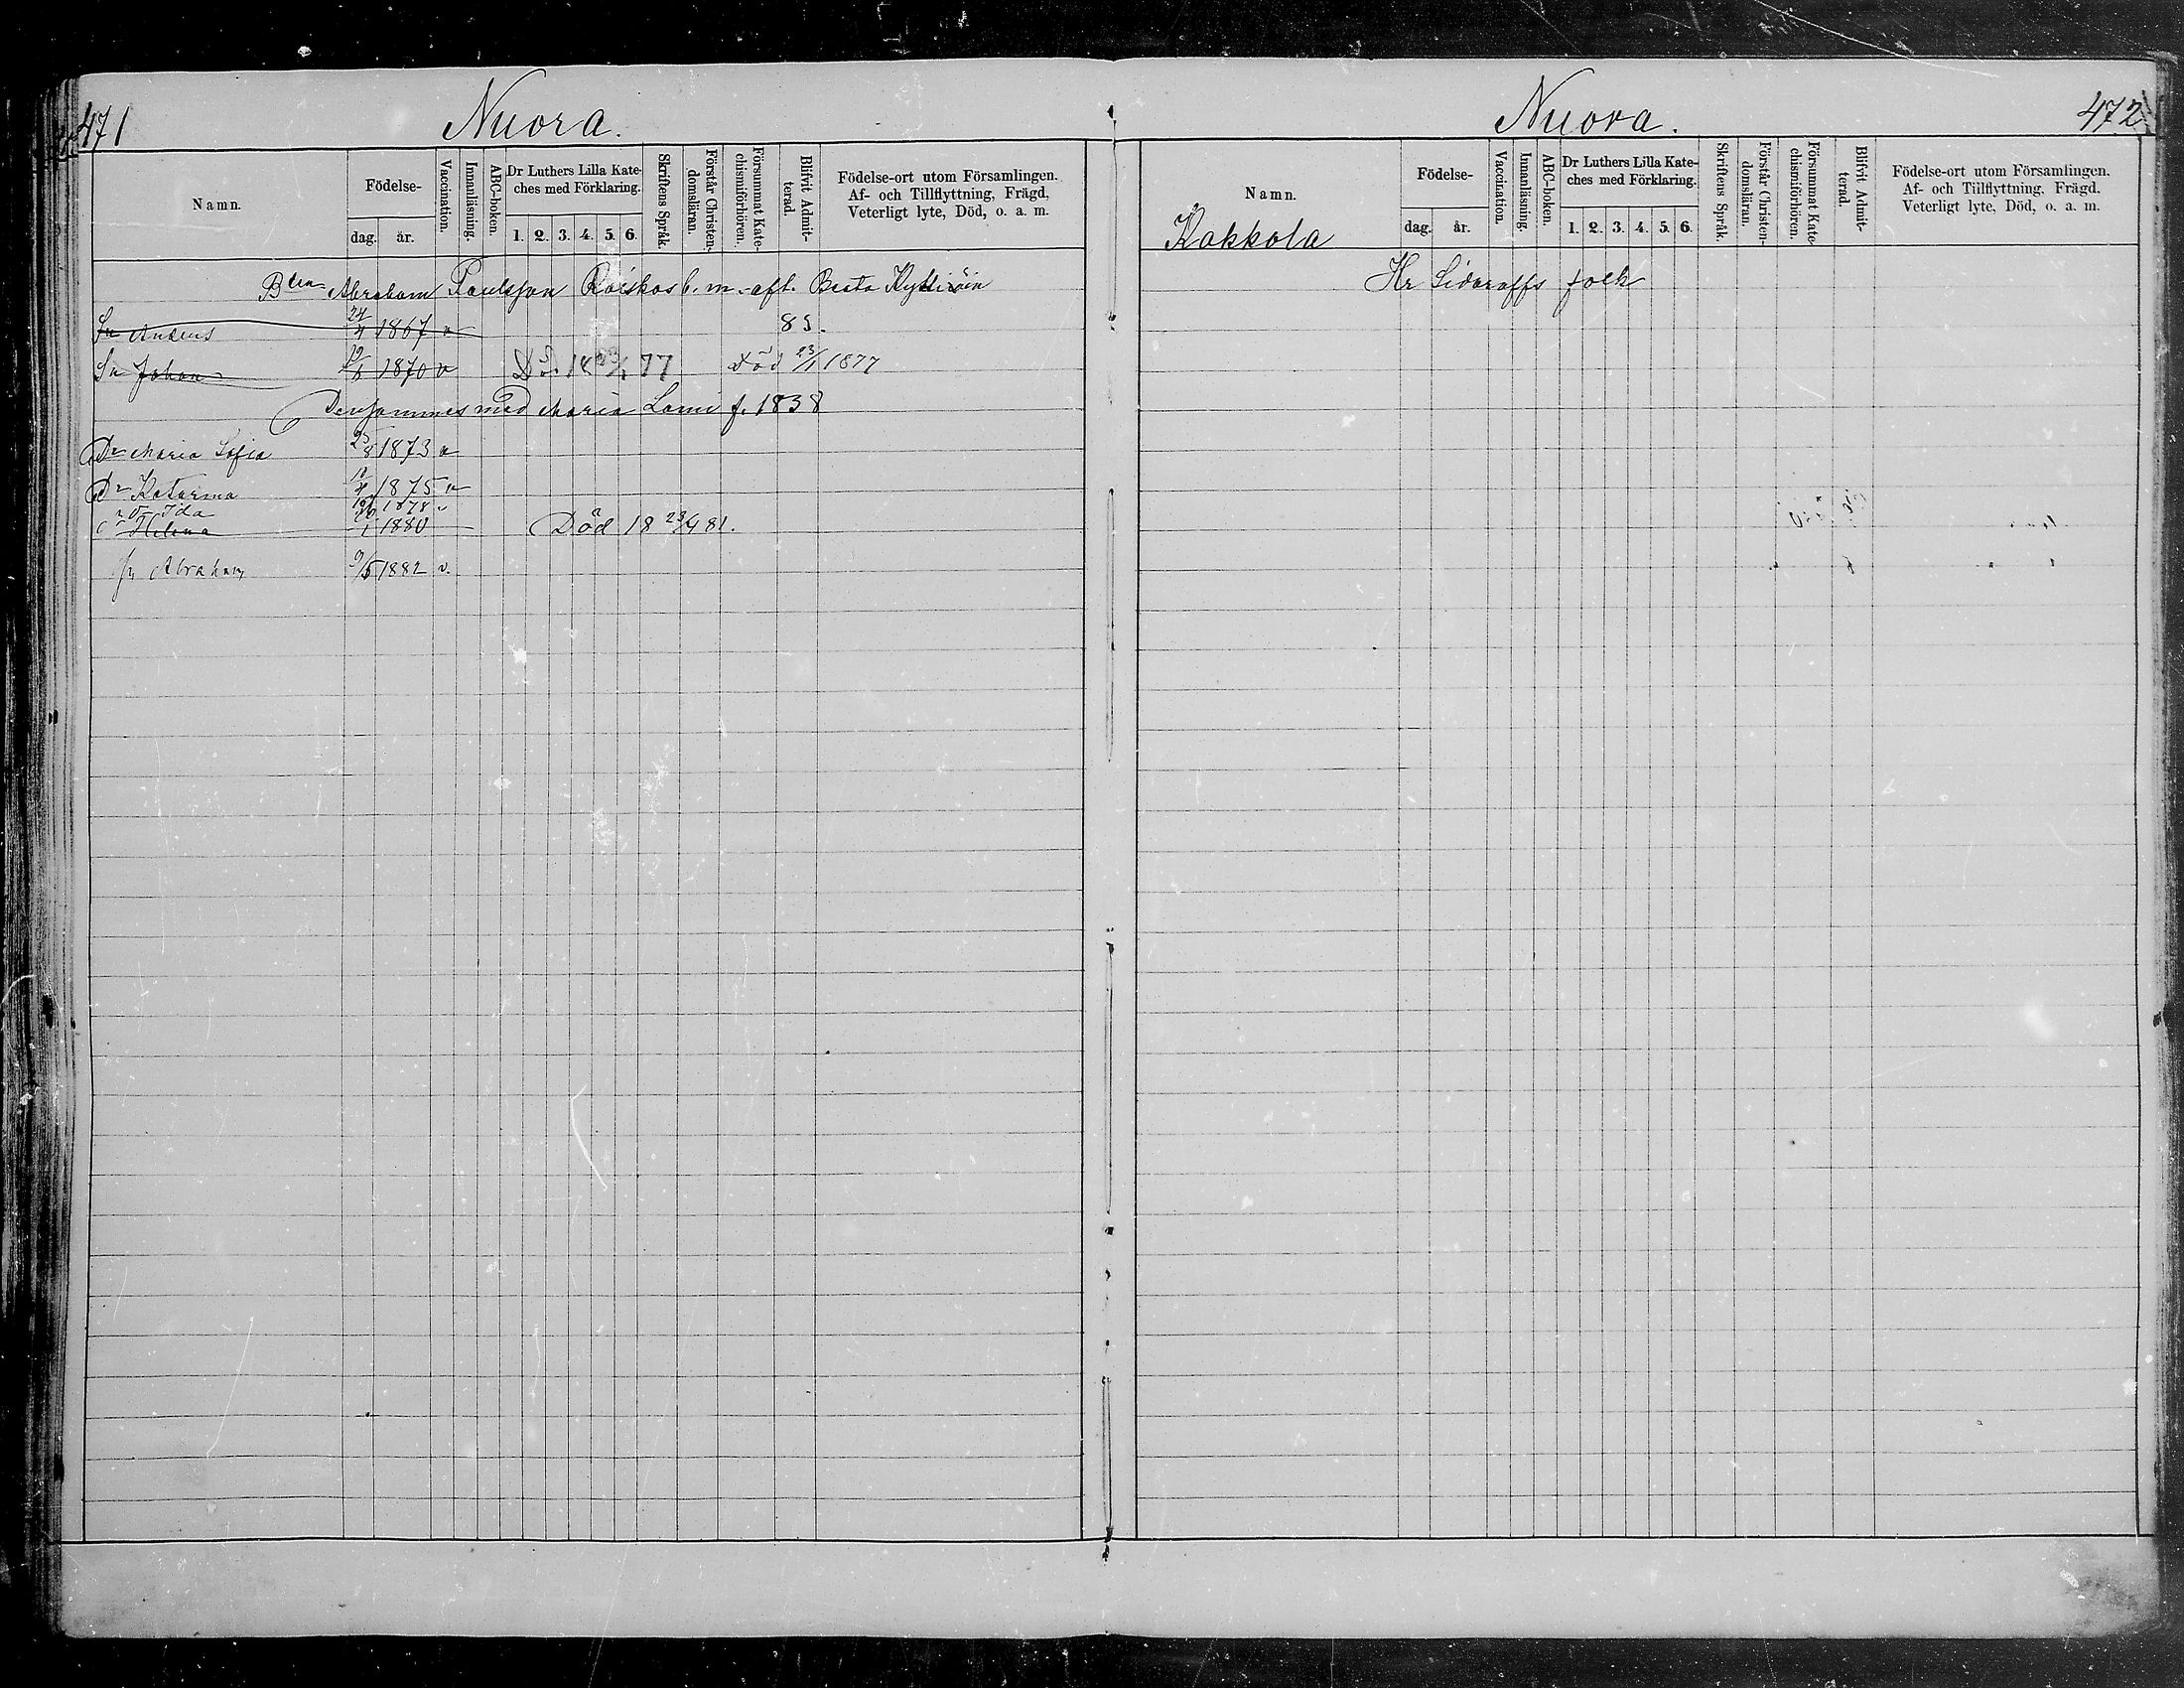 471
Nuora.
Namn.
Födelse-
dag.
år.
Vaccination.
Innanläsning.
ABC-boken.
Dr Luthers Lilla Kate-
ches med Förklaring.
1. 2. 3. 4. 5. 6.
Skriftens Språk.
Förstår Christen-
domsläran.
Försummat Kate-
chismiförhören.
Blifvit Admit-
terad.
Födelse-ort utom Församlingen.
Af- och Tillflyttning, Frägd,
Veterligt lyte, Död, o. a. m.
Abraham Paulsson Raiskas b. m. aft. Beata
Sn Anders 24/4 1867 v 85.
Sn Johan 1870 v Död 23/1 1877
Densammes med Maria Lami f. 1838
Dr Maria Sofia 25/8 1873 v
Dr Katarina 1875 v
Dr Ida 1878 v
Helena 1880 Död 18 23/4 81.
Sn Abraham 9/5 1882 v.
Nuora.
472
Namn.
Kakkola
Födelse-
dag.
år.
Vaccination.
Innanläsning.
ABC-boken.
Dr Luthers Lilla Kate-
ches med Förklaring.
1. 2. 3. 4. 5. 6.
Skriftens Språk.
Förstår Christen-
domsläran.
Försummat Kate-
chismiförhören.
Blifvit Admit-
terad.
Födelse-ort utom Församlingen.
Af- och Tillflyttning, Frägd.
Veterligt lyte, Död, o. a. m.
Hr Sidoraffs folk